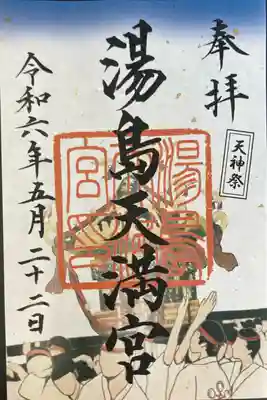 奉拝
天神祭
湯島天満宮
令和六年五月二十二日